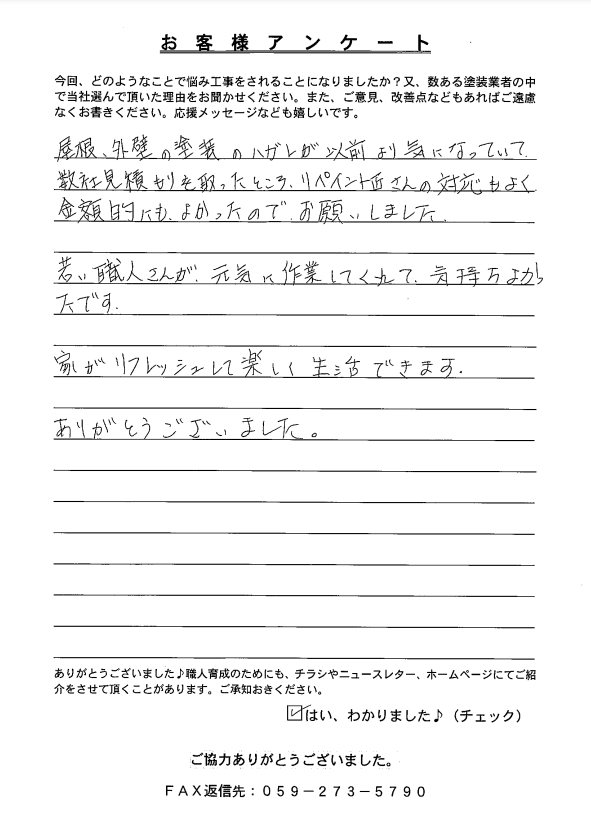 お客様アンケート
今回、どのようなことで悩み工事をされることになりましたか？又、数ある塗装業者の中
で当社選んで頂いた理由をお聞かせください。また、ご意見、改善点などもあればご遠慮
なくお書きください。応援メッセージなども嬉しいです。
屋根、外壁の塗装のハガレが以前より気になっていて、
数社見積もりを取ったところ、リペイント匠さんの対応もよく
金額的にも、よかったので、お願いしました。
若い職人さんが、元気に作業してくれて、気持ちよかっ
たです。
家がリフレッシュして楽しく生活できます。
ありがとうございました。
ありがとうございました♪職人育成のためにも、チラシやニュースレター、ホームページにてご紹
介をさせて頂くことがあります。ご承知おきください。
☑はい、わかりました♪（チェック）
ご協力ありがとうございました。
ＦＡＸ返信先：０５９－２７３－５７９０